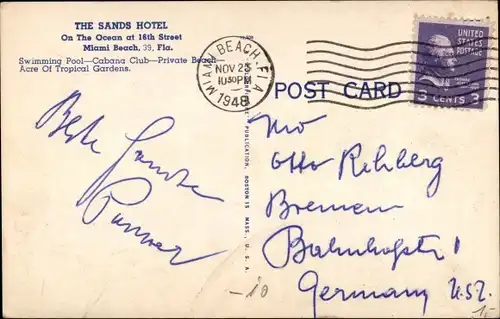 THE SANDS HOTEL
On The Ocean at 16th Street
Miami Beach, 39, Fla.
Swimming Pool—Cabana Club—Private Beach—
Acre Of Tropical Gardens.
MIAMI BEACH, FLA
NOV 23
10 30 PM
1948
UNITED
STATES
POSTAGE
3 CENTS 3
POST CARD
Beste
Otto Rehberg
Bremen
Bahnhofstr 1
Germany U.S.Z.
PUBLICATION, BOSTON 15 MASS., U.S.A.
-10